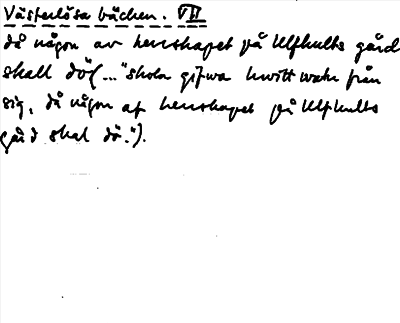 Västerlösa bäcken. VII
då någon av herrskapet på Ulfhults gård
skall dö(..."skola gifwa hwitt watn från
sig, då någon af herrskapet på Ulfhults
gård skal dö.").